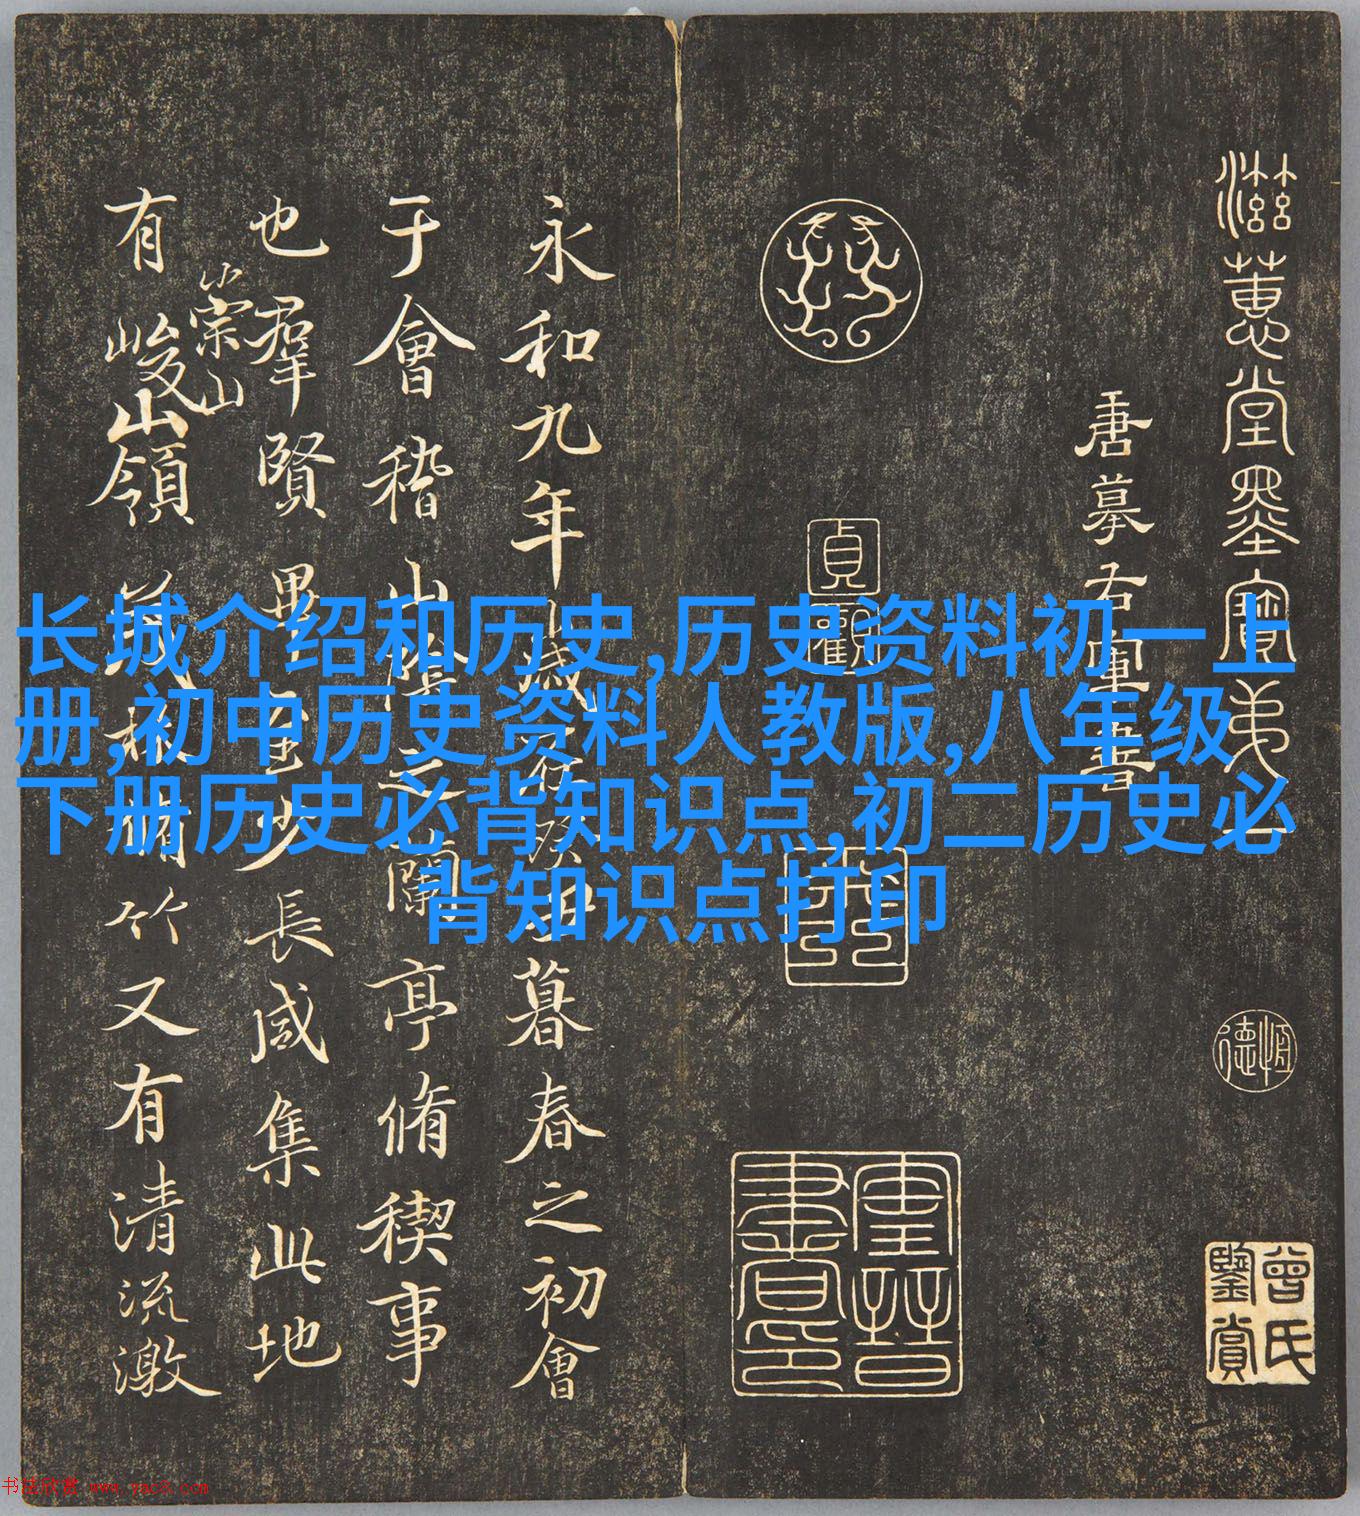 滋蕙堂墨寶弟一
唐摹右軍書
恒德
曾氏鑒賞
貞觀
永和九年歲在癸丑暮春之初會
于會稽山陰之蘭亭脩稧事
也羣賢畢至少長咸集此地
崇山
有峻領茂林脩竹又有清流激
长城介绍和历史,历史资料初一上
册,初中历史资料人教版,八年级
下册历史必背知识点,初二历史必
背知识点打印
书法欣赏 www.yac8.com